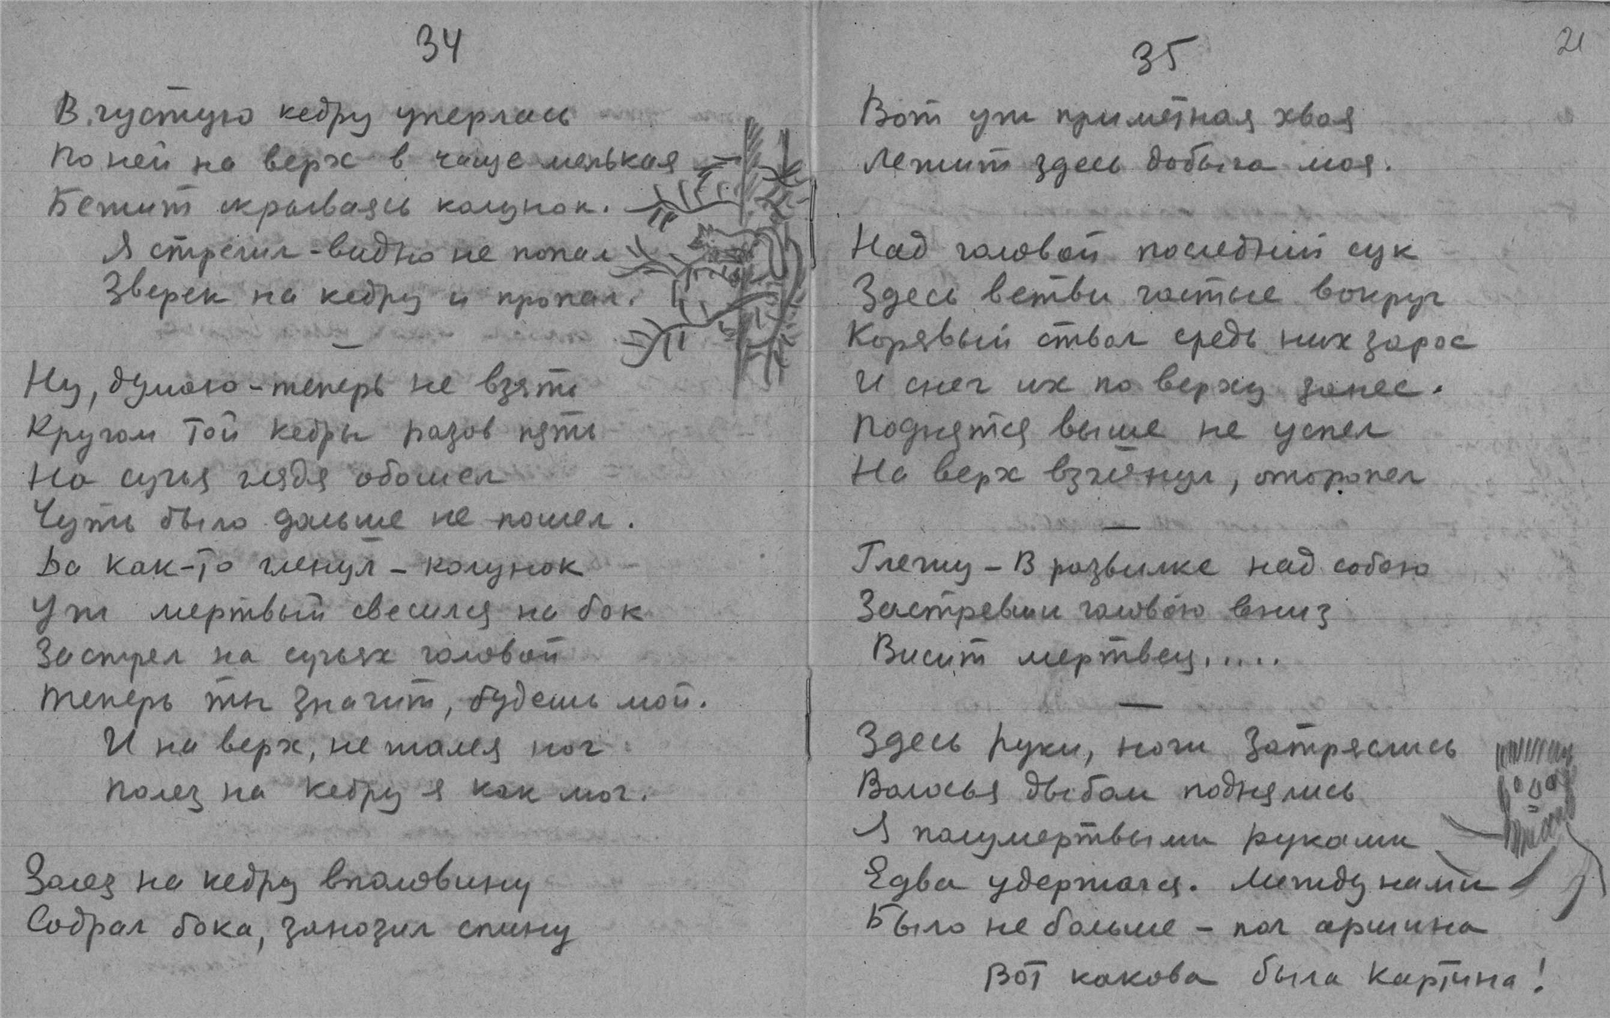 34
В густую кедру уперлась
По ней на верх в чаще мелькая
Бежит скрываясь колунок.
Я стрелил - видно не попал
Зверек на кедру и пропал.
—
Ну, думаю - теперь не взять
Кругом той кедры разов пять
На сучья глядя обошел
Чуть было дальше не пошел.
Да как-то гленул - колунок
Уж мертвый свесился на бок
Застрел на сучьях головой
Теперь ты значит, будешь мой.
И на верх, не жалея ног
Полез на кедру я как мог.
Залез на кедру вполовину
Содрал бока, занозил спину
21
35
Вот уж приметная хвоя
Лежит здесь добыча моя.
Над головой последний сук
Здесь ветви частые вокруг
Корявый ствол средь них зарос
И снег их по верху занес.
Поднятся выше не успел
На верх взглянул, оторопел
—
Глежу - В развилке над собою
Застревши головою вниз
Висит мертвец.....
—
Здесь руки, ноги затряслись
Волосья дыбом поднялись
Я полумертвыми руками
Едва удержался. Между нами
Было не больше - пол аршина
Вот какова была картина!